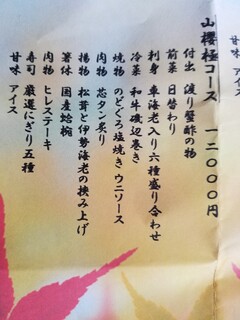 山櫻極コース 一二〇〇〇円
付出 渡り蟹酢の物
前菜 日替わり
刺身 車海老入り六種盛り合わせ
冷菜 和牛磯辺巻き
焼物 のどぐろ塩焼き ウニソース
肉物 芯タン炙り
揚物 松茸と伊勢海老の挟み上げ
箸休 国産蛤椀
肉物 ヒレステーキ
寿司 厳選にぎり五種
甘味 アイス